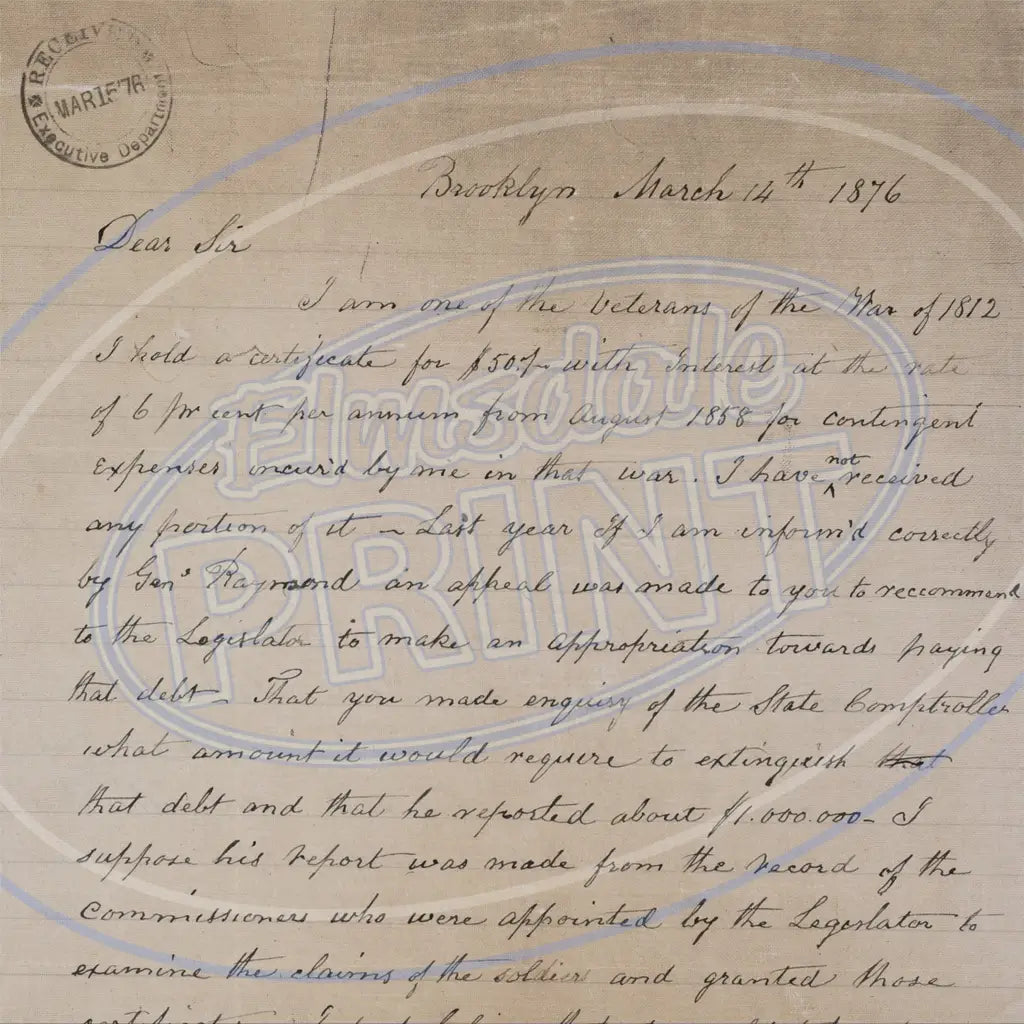 RECEIVED
MAR 15 '76
Executive Department
Brooklyn March 14th 1876
Dear Sir
I am one of the Veterans of the War of 1812
I hold a certificate for $50 with Interest at the rate
of 6 pr cent per annum from August 1858 for contingent
Expenses incur'd by me in that war. I have not received
any portion of it – Last year If I am inform'd correctly
by Genl Raymond an appeal was made to you to reccommend
to the Legislator to make an appropriation towards paying
that debt – That you made enquiry of the State Comptroller
what amount it would require to extinguish that
that debt and that he reported about $1.000.000 – I
suppose his report was made from the record of the
Commissioners who were appointed by the Legislator to
examine the claims of the soldiers and granted those
Elmsdale
PRINT